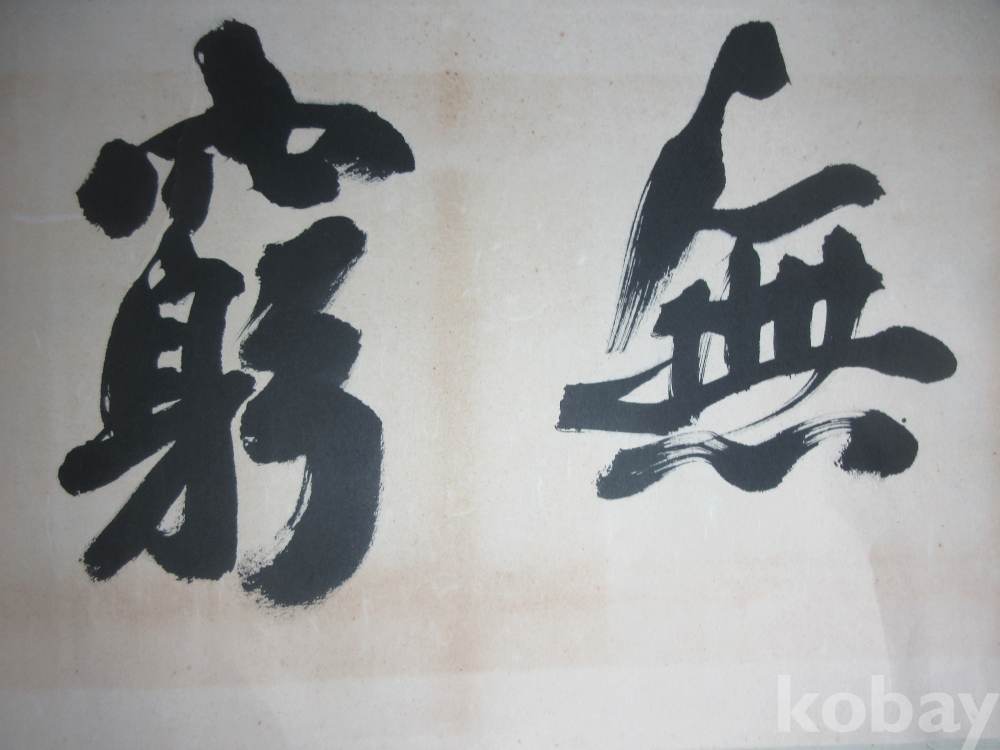 無窮
kobay